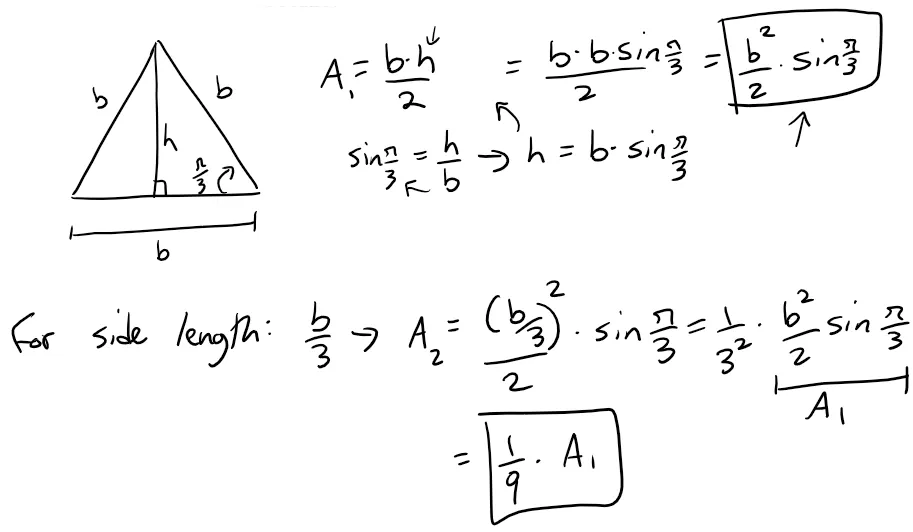 A₁ = b·h/2 = b·b·sin π/3 / 2 = b²/2 · sin π/3
sin π/3 = h/b → h = b· sin π/3
b
b
h
π/3
b
For side length: b/3 → A₂ = (b/3)²/2 · sin π/3 = 1/3² · b²/2 sin π/3
A₁
= 1/9 · A₁